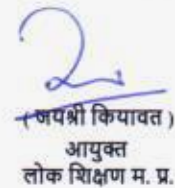 ( जयश्री कियावत )
आयुक्त
लोक शिक्षण म. प्र.